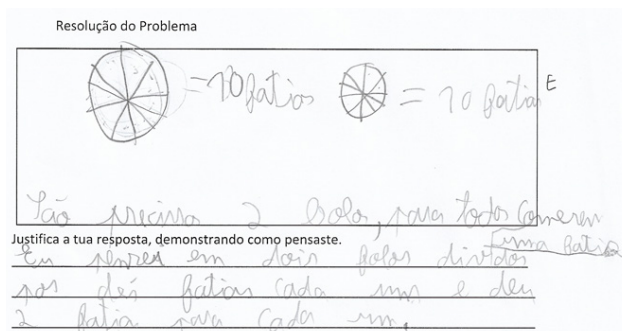 Resolução do Problema
= 10 fatias = 10 fatias E
São preciso 2 bolos, para todos comerem
uma fatia
Justifica a tua resposta, demonstrando como pensaste.
Eu pensei em dois bolos dividos
por dés fatias cada um e deu
2 fatia para cada um.